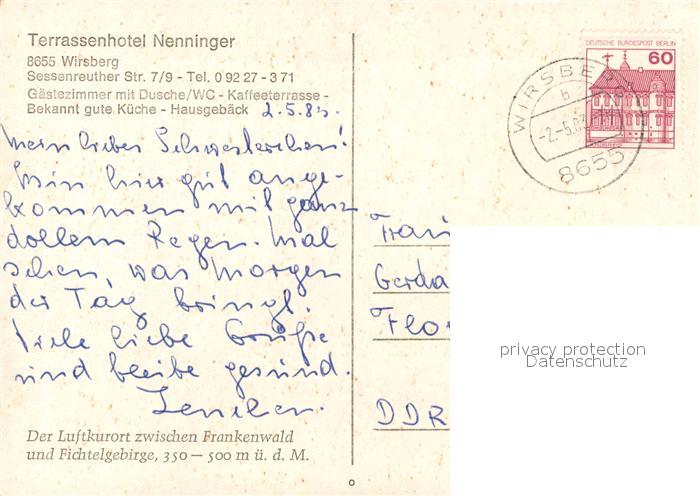 Terrassenhotel Nenninger
8655 Wirsberg
Sessenreuther Str. 7/9 - Tel. 0 92 27 - 3 71
Gästezimmer mit Dusche/WC - Kaffeeterrasse -
Bekannt gute Küche - Hausgebäck
2.5.83.
Mein liebes Schwesterchen!
Bin hier gut ange-
kommen mit ganz
dollem Regen. Mal
sehen, was morgen
der Tag bringt.
Viele liebe Grüße
und bleibe gesund.
Lenchen.
Der Luftkurort zwischen Frankenwald
und Fichtelgebirge, 350 — 500 m ü. d. M.
DEUTSCHE BUNDESPOST BERLIN
60
WIRSBERG
b
-2.-5.83
8655
Frau
Gerda
Flo
DDR
privacy protection
Datenschutz